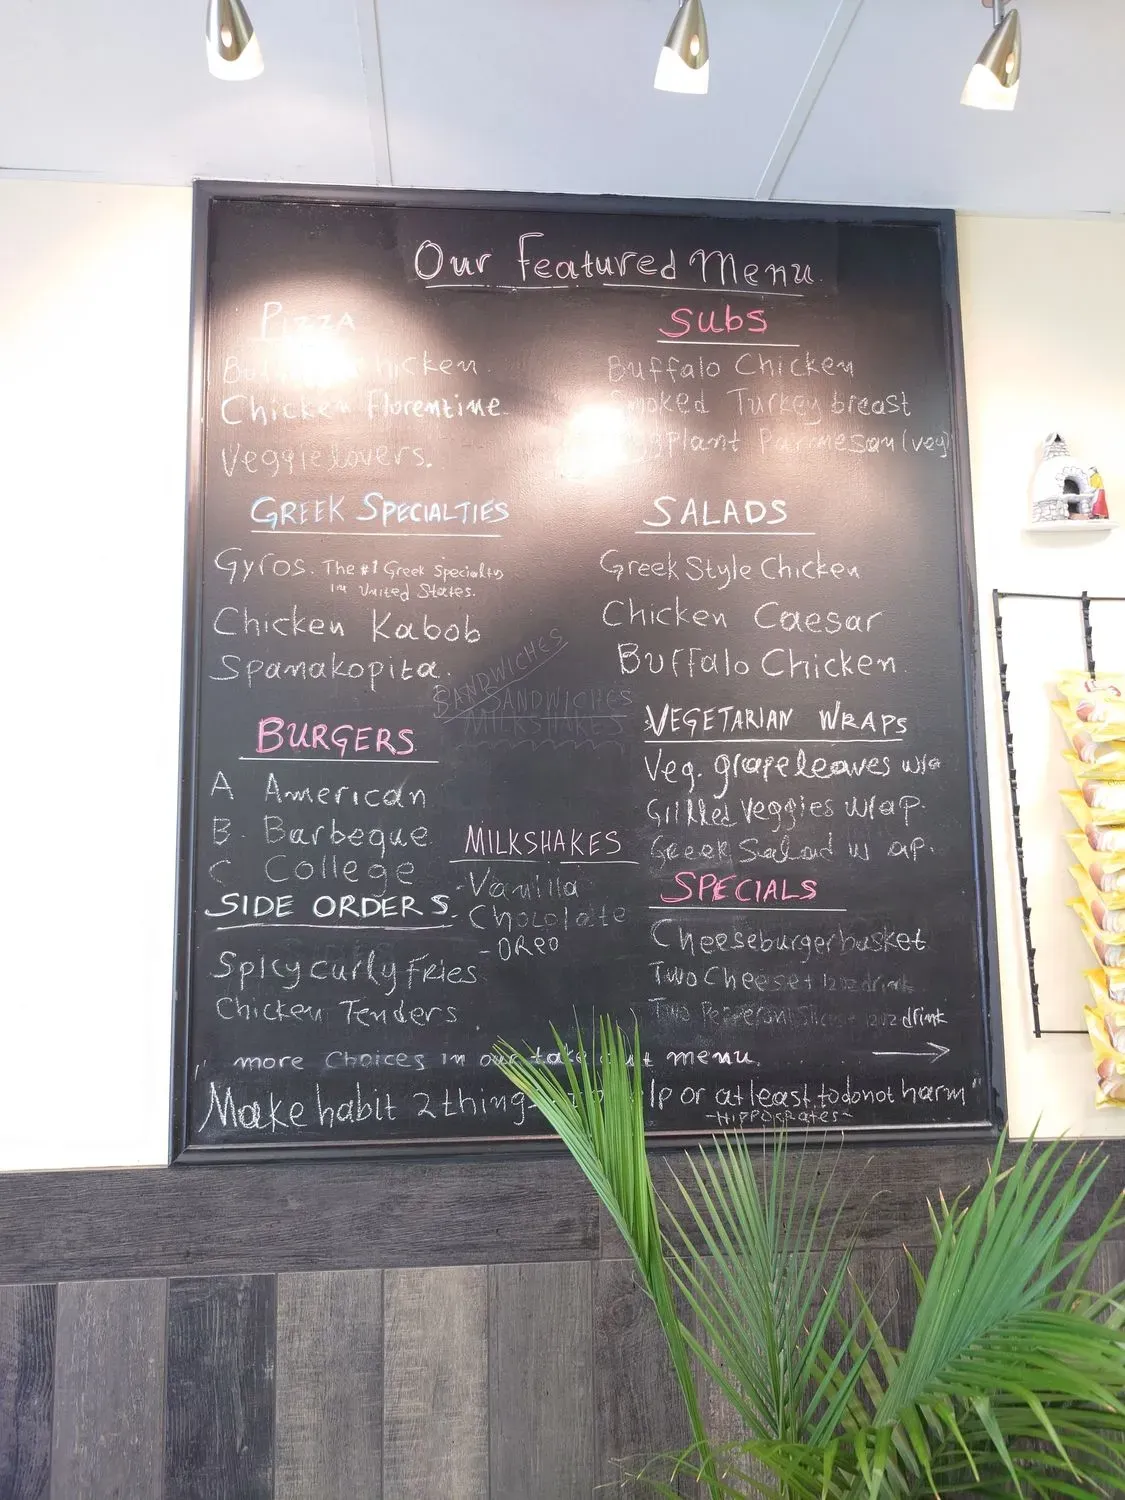 Our Featured Menu
PIZZA
Chicken
Chicken Florentine
Veggie lovers.
GREEK SPECIALTIES
Gyros. The #1 Greek Specialty
in United States.
Chicken Kabob
Spanakopita.
BURGERS
A American
B. Barbeque
C College
SIDE ORDERS
Spicy curly fries
Chicken Tenders
SANDWICHES
SANDWICHES
MILKSHAKES
MILKSHAKES
- Vanilla
- Chocolate
- OREO
SUBS
Buffalo Chicken
Smoked Turkey breast
Eggplant Parmesan (veg)
SALADS
Greek Style Chicken
Chicken Caesar
Buffalo Chicken
VEGETARIAN WRAPS
Veg. grape leaves
Grilled Veggies wrap.
Greek Salad wrap.
SPECIALS
Cheeseburger basket
Two Cheese + 12oz drink
Two Pepperoni Slices + 12oz drink
more Choices in our take out menu.
Make habit 2 things or at least to do not harm"
- HIPPOCRATES -